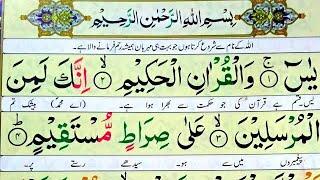 بِسْمِ اللّٰهِ الرَّحْمٰنِ الرَّحِيْمِ
اللہ کے نام سے شروع کرتا ہوں جو بہت ہی مہربان ہمیشہ رحم فرمانے والا ہے۔
يٰسٓ ۚ﴿۱﴾ وَالْقُرْاٰنِ الْحَكِيْمِ ۙ﴿۲﴾ اِنَّكَ لَمِنَ
یٰسٓ۔ قسم ہے قرآن کی جو حکمت سے بھرا ہوا ہے۔ (اے محمدؐ) بیشک تم
الْمُرْسَلِيْنَ ۙ﴿۳﴾ عَلٰى صِرَاطٍ مُّسْتَقِيْمٍ ؕ﴿۴﴾
پیغمبروں میں سے ہو۔ سیدھے رستے پر۔